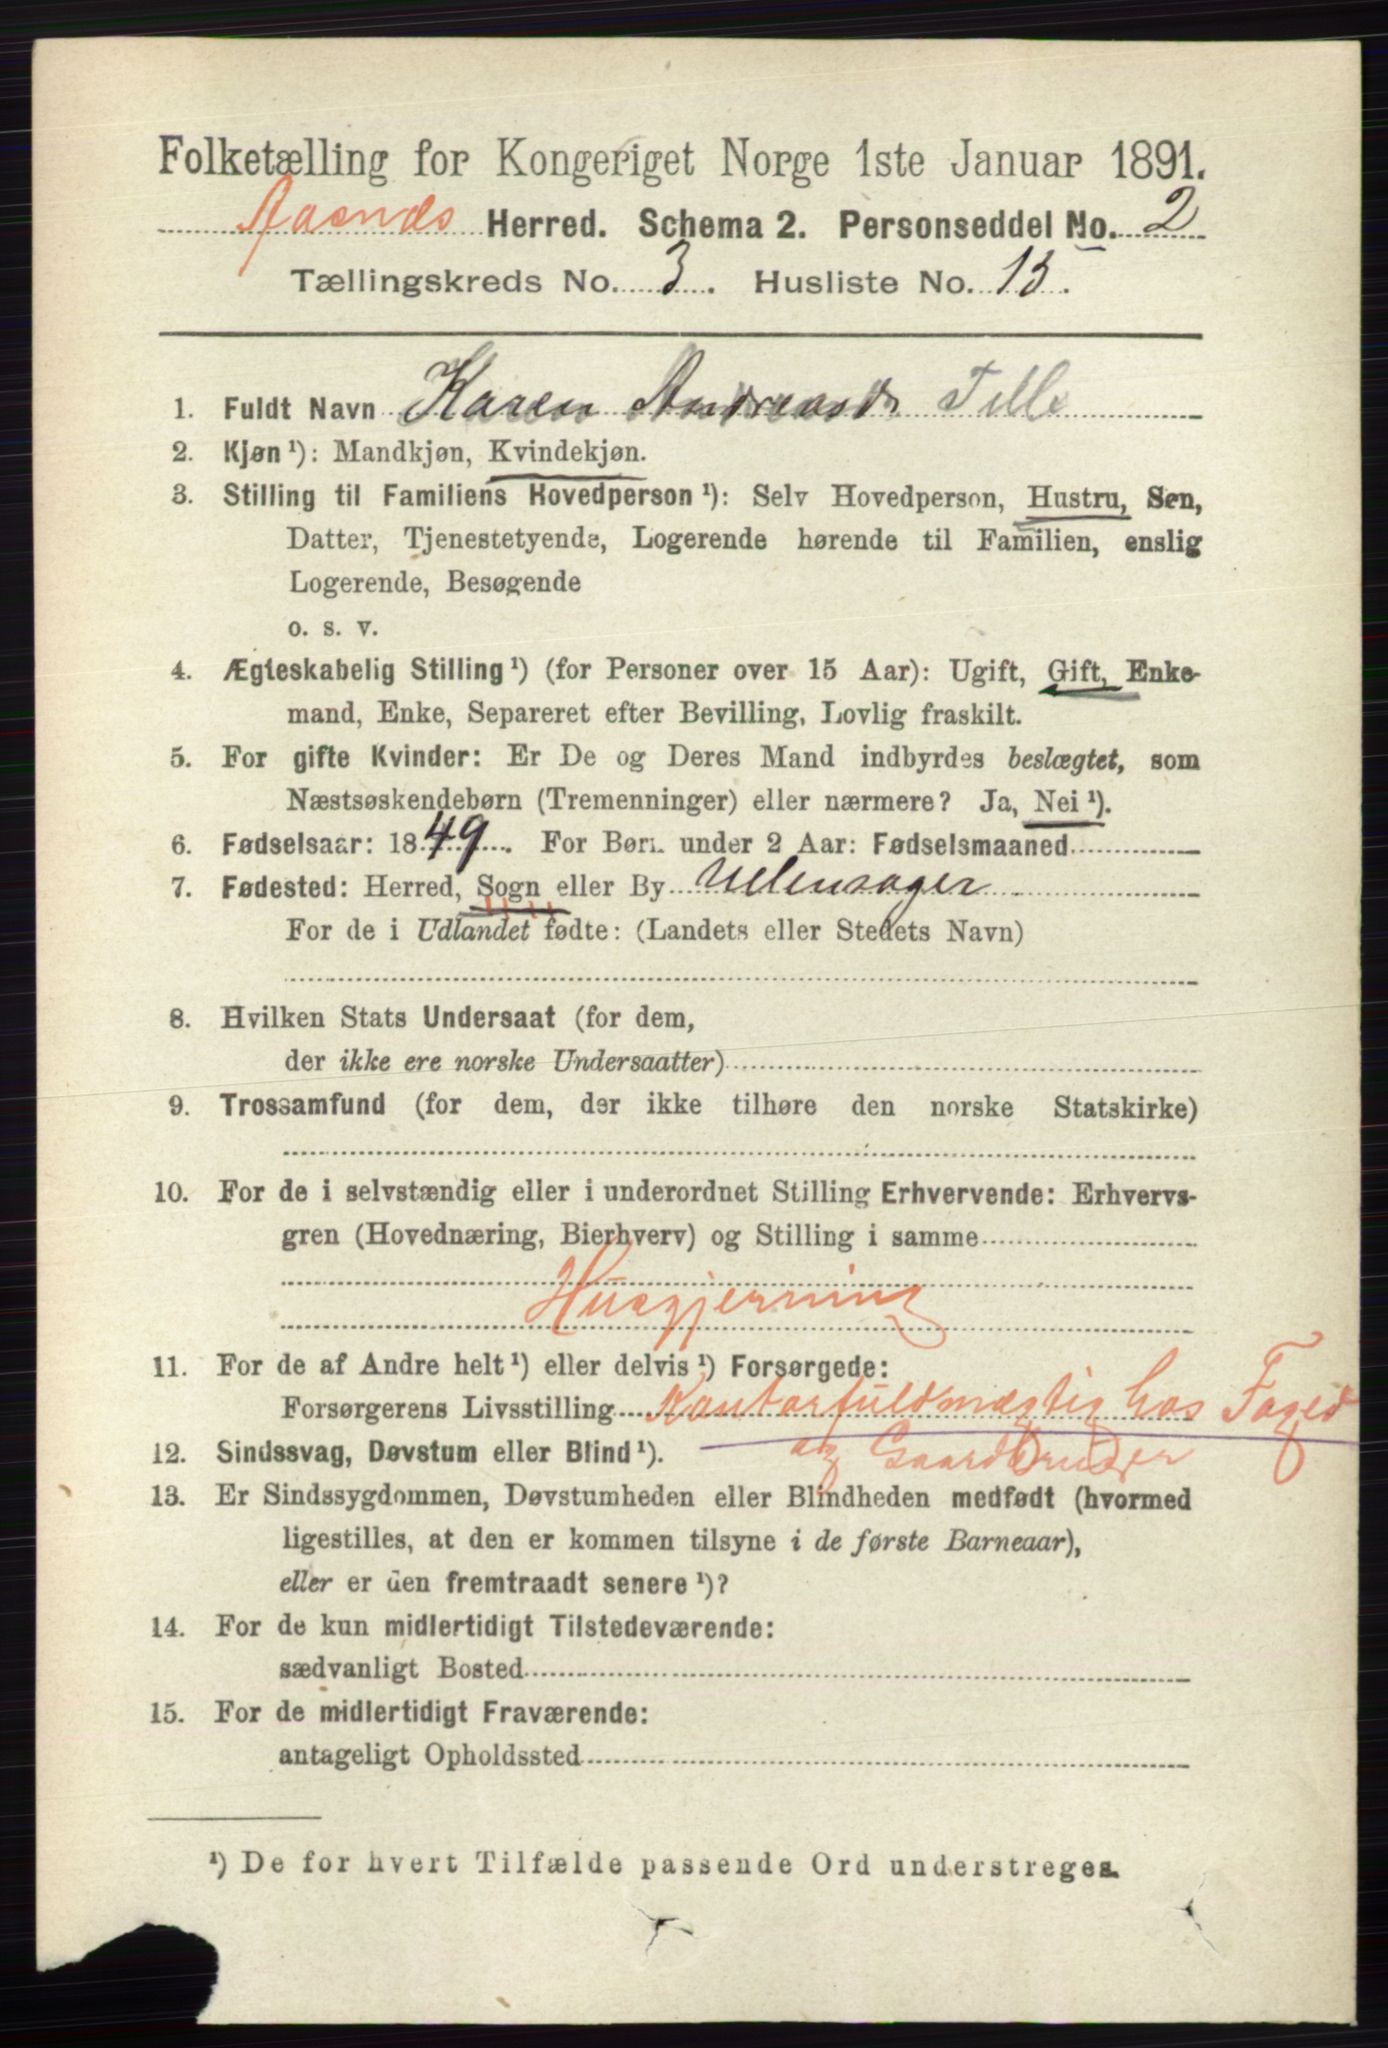 Folketælling for Kongeriget Norge 1ste Januar 1891.
Aasnæs Herred. Schema 2. Personseddel No. 2
Tællingskreds No. 3. Husliste No. 13.
1. Fuldt Navn Karen Andreasdr
2. Kjøn ¹): Mandkjøn, Kvindekjøn.
3. Stilling til Familiens Hovedperson ¹): Selv Hovedperson, Hustru, Søn,
Datter, Tjenestetyende, Logerende hørende til Familien, enslig
Logerende, Besøgende
o. s. v.
4. Ægteskabelig Stilling ¹) (for Personer over 15 Aar): Ugift, Gift, Enke-
mand, Enke, Separeret efter Bevilling, Lovlig fraskilt.
5. For gifte Kvinder: Er De og Deres Mand indbyrdes beslægtet, som
Næstsøskendebørn (Tremenninger) eller nærmere? Ja, Nei ¹).
6. Fødselsaar: 1849. For Børn under 2 Aar: Fødselsmaaned
7. Fødested: Herred, Sogn eller By Ullensager
For de i Udlandet fødte: (Landets eller Stedets Navn)
8. Hvilken Stats Undersaat (for dem,
der ikke ere norske Undersaatter)
9. Trossamfund (for dem, der ikke tilhøre den norske Statskirke)
10. For de i selvstændig eller i underordnet Stilling Erhvervende: Erhvervs-
gren (Hovednæring, Bierhverv) og Stilling i samme
Husgjerning
11. For de af Andre helt ¹) eller delvis ¹) Forsørgede:
Forsørgerens Livsstilling Kontorfuldmægtig hos Foged
og Gaardbruger
12. Sindssvag, Døvstum eller Blind ¹).
13. Er Sindssygdommen, Døvstumheden eller Blindheden medfødt (hvormed
ligestilles, at den er kommen tilsyne i de første Barneaar),
eller er den fremtraadt senere ¹)?
14. For de kun midlertidigt Tilstedeværende:
sædvanligt Bosted
15. For de midlertidigt Fraværende:
antageligt Opholdssted
¹) De for hvert Tilfælde passende Ord understreges.